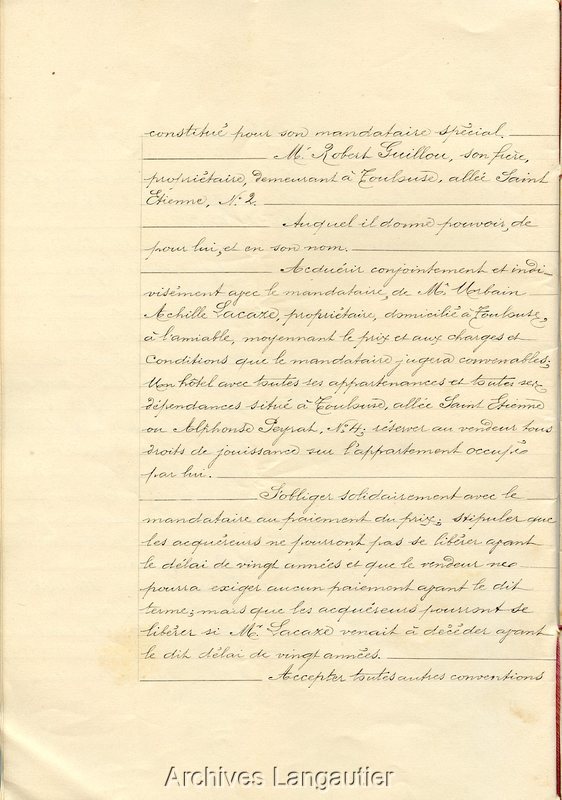 constitué pour son mandataire spécial.
Mr. Robert Guillou, son frère,
propriétaire, demeurant à Toulouse, allée Saint
Etienne, No. 2.
Auquel il donne pouvoir, de
pour lui, et en son nom.
Acquérir conjointement et indi-
visément avec le mandataire, de Mr. Urbain
Achille Lacaze, propriétaire, domicilié à Toulouse,
à l'amiable, moyennant le prix et aux charges et
conditions que le mandataire jugera convenables;
Un hôtel avec toutes ses appartenances et toutes ses
dépendances situé à Toulouse, allée Saint Etienne
ou Alphonse Peyrat, No. 4, réserver au vendeur tous
droits de jouissance sur l'appartement occupé
par lui.
S'obliger solidairement avec le
mandataire au paiement du prix; stipuler que
les acquéreurs ne pourront pas se libérer avant
le délai de vingt années et que le vendeur ne
pourra exiger aucun paiement avant le dit
terme; mais que les acquéreurs pourront se
libérer si Mr. Lacaze venait à décéder avant
le dit délai de vingt années.
Accepter toutes autres conventions
Archives Langautier